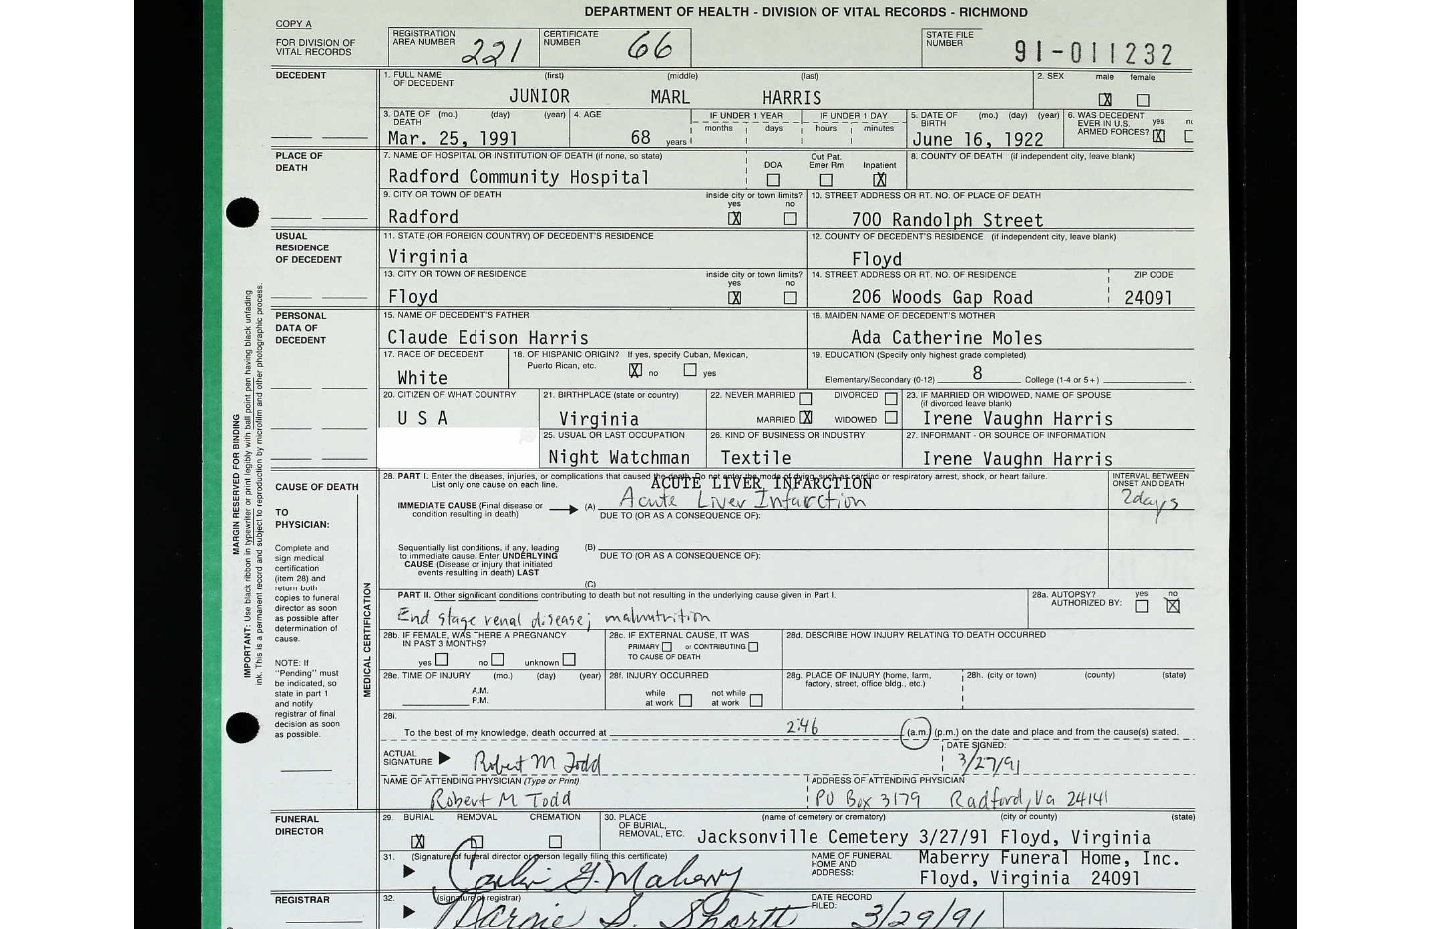 DEPARTMENT OF HEALTH - DIVISION OF VITAL RECORDS - RICHMOND
COPY A
FOR DIVISION OF VITAL RECORDS
REGISTRATION AREA NUMBER 221 CERTIFICATE NUMBER 66 STATE FILE NUMBER 91-011232
DECEDENT
1. FULL NAME OF DECEDENT (first) (middle) (last) 2. SEX male female
JUNIOR MARL HARRIS X
3. DATE OF DEATH (mo.) (day) (year) 4. AGE IF UNDER 1 YEAR IF UNDER 1 DAY 5. DATE OF BIRTH (mo.) (day) (year) 6. WAS DECEDENT EVER IN U.S. ARMED FORCES? yes X
months days hours minutes
Mar. 25, 1991 68 years June 16, 1922
PLACE OF DEATH
7. NAME OF HOSPITAL OR INSTITUTION OF DEATH (if none, so state) DOA Out Pat. Emer Rm Inpatient X 8. COUNTY OF DEATH (if independent city, leave blank)
Radford Community Hospital
9. CITY OR TOWN OF DEATH inside city or town limits? yes X no 10. STREET ADDRESS OR RT. NO. OF PLACE OF DEATH
Radford 700 Randolph Street
USUAL RESIDENCE OF DECEDENT
11. STATE (OR FOREIGN COUNTRY) OF DECEDENT'S RESIDENCE 12. COUNTY OF DECEDENT'S RESIDENCE (if independent city, leave blank)
Virginia Floyd
13. CITY OR TOWN OF RESIDENCE inside city or town limits? yes X no 14. STREET ADDRESS OR RT. NO. OF RESIDENCE ZIP CODE
Floyd 206 Woods Gap Road 24091
PERSONAL DATA OF DECEDENT
15. NAME OF DECEDENT'S FATHER 16. MAIDEN NAME OF DECEDENT'S MOTHER
Claude Edison Harris Ada Catherine Moles
17. RACE OF DECEDENT 18. OF HISPANIC ORIGIN? If yes, specify Cuban, Mexican, Puerto Rican, etc. X no yes 19. EDUCATION (Specify only highest grade completed)
White Elementary/Secondary (0-12) 8 College (1-4 or 5+)
20. CITIZEN OF WHAT COUNTRY 21. BIRTHPLACE (state or country) 22. NEVER MARRIED DIVORCED MARRIED X WIDOWED 23. IF MARRIED OR WIDOWED, NAME OF SPOUSE (if divorced leave blank)
U S A Virginia Irene Vaughn Harris
25. USUAL OR LAST OCCUPATION 26. KIND OF BUSINESS OR INDUSTRY 27. INFORMANT - OR SOURCE OF INFORMATION
Night Watchman Textile Irene Vaughn Harris
MARGIN RESERVED FOR BINDING
IMPORTANT: Use black ribbon in typewriter or print legibly with ball point pen having black unfading ink. This is a permanent record and subject to reproduction by microfilm and other photographic process.
CAUSE OF DEATH
TO PHYSICIAN:
Complete and
sign medical
certification
(item 28) and
return both
copies to funeral
director as soon
as possible after
determination of
cause.
NOTE: If
"Pending" must
be indicated, so
state in part 1
and notify
registrar of final
decision as soon
as possible.
MEDICAL CERTIFICATION
28. PART I. Enter the diseases, injuries, or complications that caused the death. Do not enter the mode of dying, such as cardiac or respiratory arrest, shock, or heart failure. List only one cause on each line. INTERVAL BETWEEN ONSET AND DEATH
ACUTE LIVER INFARCTION
IMMEDIATE CAUSE (Final disease or condition resulting in death) (A) Acute Liver Infarction 2 days
DUE TO (OR AS A CONSEQUENCE OF):
Sequentially list conditions, if any, leading to immediate cause. Enter UNDERLYING CAUSE (Disease or injury that initiated events resulting in death) LAST
(B)
DUE TO (OR AS A CONSEQUENCE OF):
(C)
PART II. Other significant conditions contributing to death but not resulting in the underlying cause given in Part I. 28a. AUTOPSY? AUTHORIZED BY: yes no X
End stage renal disease; malnutrition
28b. IF FEMALE, WAS THERE A PREGNANCY IN PAST 3 MONTHS? yes no unknown 28c. IF EXTERNAL CAUSE, IT WAS PRIMARY or CONTRIBUTING TO CAUSE OF DEATH 28d. DESCRIBE HOW INJURY RELATING TO DEATH OCCURRED
28e. TIME OF INJURY (mo.) (day) (year) A.M. P.M. 28f. INJURY OCCURRED while at work not while at work 28g. PLACE OF INJURY (home, farm, factory, street, office bldg., etc.) 28h. (city or town) (county) (state)
28i.
To the best of my knowledge, death occurred at 2:46 (a.m.) (p.m.) on the date and place and from the cause(s) stated.
ACTUAL SIGNATURE Robert M Todd DATE SIGNED: 3/27/91
NAME OF ATTENDING PHYSICIAN (Type or Print) ADDRESS OF ATTENDING PHYSICIAN
Robert M Todd PO Box 3179 Radford, Va 24141
FUNERAL DIRECTOR
29. BURIAL REMOVAL CREMATION 30. PLACE OF BURIAL, REMOVAL, ETC. (name of cemetery or crematory) (city or county) (state)
X Jacksonville Cemetery 3/27/91 Floyd, Virginia
31. (Signature of funeral director or person legally filing this certificate) NAME OF FUNERAL HOME AND ADDRESS: Maberry Funeral Home, Inc.
Floyd, Virginia 24091
REGISTRAR
32. (signature of registrar) DATE RECORD FILED: 3/29/91
Marnie S. Shortt